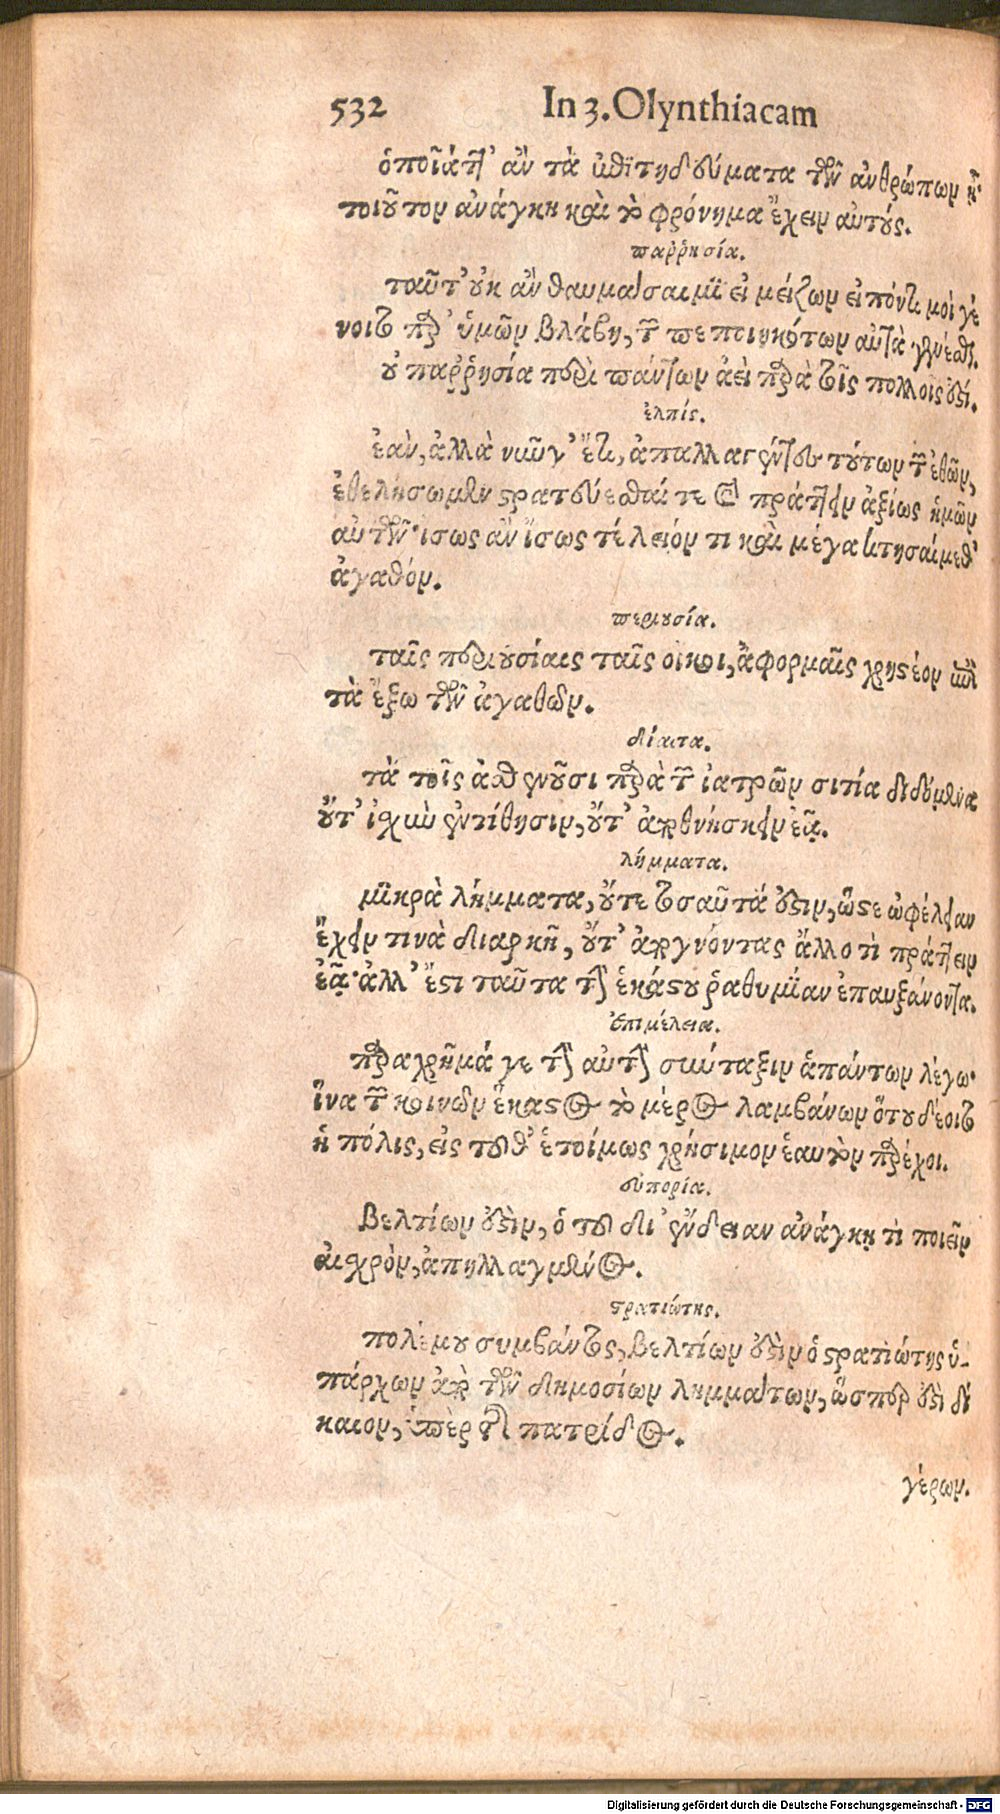 532 In 3. Olynthiacam
ὁποῖάττ' ἂν τὰ ἐπιτηδεύματα τῶν ἀνθρώπων ᾖ·
τοιοῦτον ἀνάγκη καὶ τὸ φρόνημα ἔχειν αὐτούς.
παῤῥησία.
ταῦτ' οὐκ ἂν θαυμάσαιμι εἰ μείζων εἰπόντι μοὶ γέ
νοιτο παρ' ὑμῶν βλάβη, τῶν πεποιηκότων αὐτὰ γενέσθαι.
οὐ παῤῥησία περὶ πάντων ἀεὶ παρὰ τοῖς πολλοῖς ἐστί.
ἐλπίς.
ἐὰν, ἀλλὰ νῦν γ' ἔτι, ἀπαλλαγέντες τούτων τῶν ἐθῶν,
ἐθελήσωμεν στρατεύεσθαί τε καὶ πράττειν ἀξίως ἡμῶν
αὐτῶν· ἴσως ἂν ἴσως τέλειόν τι καὶ μέγα κτησαίμεθ'
ἀγαθόν.
περιουσία.
ταῖς περιουσίαις ταῖς οἴκοι, ἀφορμαῖς χρηστέον ἐπὶ
τὰ ἔξω τῶν ἀγαθῶν.
δίαιτα.
τὰ τοῖς ἀσθενοῦσι παρὰ τῶν ἰατρῶν σιτία διδόμενα
οὔτ' ἰσχὺν ἐντίθησιν, οὔτ' ἀποθνήσκειν ἐᾷ.
λήμματα.
μικρὰ λήμματα, οὔτε τοσαῦτά ἐστιν, ὥστε ὠφέλειαν
ἔχειν τινὰ διαρκῆ, οὔτ' ἀπογνόντας ἄλλο τὶ πράττειν
ἐᾷ· ἀλλ' ἔστι ταῦτα τὴν ἑκάστου ῥαθυμίαν ἐπαυξάνοντα.
ἐπιμέλεια.
παραχρῆμά γε τὴν αὐτὴν σύνταξιν ἁπάντων λέγω·
ἵνα τῶν κοινῶν ἕκαστος τὸ μέρος λαμβάνων ὅτου δέοιτο
ἡ πόλις, εἰς τοῦθ' ἑτοίμως χρήσιμον ἑαυτὸν παρέχοι.
εὐπορία.
βελτίων ἐστὶν, ὁ τοῦ δι' ἔνδειαν ἀνάγκῃ τὶ ποιεῖν
αἰσχρὸν, ἀπηλλαγμένος.
στρατιώτης.
πολέμου συμβάντος, βελτίων ἐστὶν ὁ στρατιώτης ὑ-
πάρχων ἀπὸ τῶν δημοσίων λημμάτων, ὥσπερ ἐστὶ δί
καιον, ὑπὲρ τῆς πατρίδος.
γέρων.
Digitalisierung gefördert durch die Deutsche Forschungsgemeinschaft - DFG